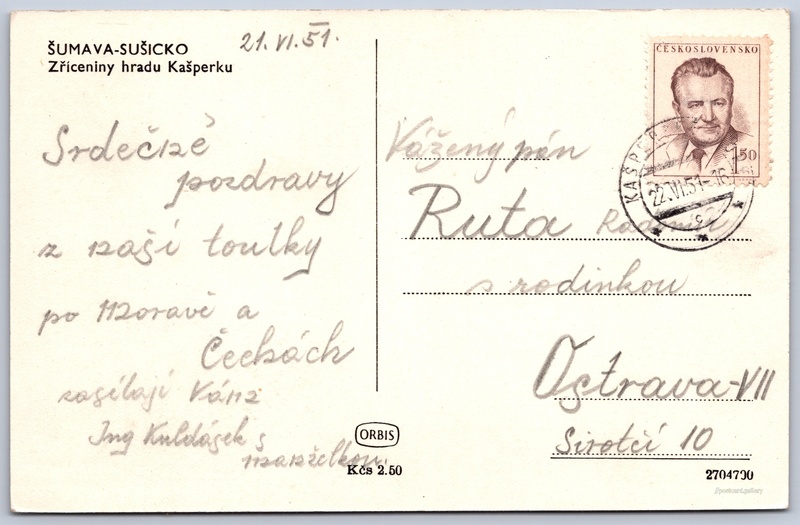 ŠUMAVA-SUŠICKO
Zříceniny hradu Kašperku
21.VI.51.
Srdečné
pozdravy
z naší toulky
po Moravě a
Čechách
zasílají Vám
Ing Kuldášek s
manželkou.
ORBIS
Kčs 2.50
ČESKOSLOVENSKO
1,50
KAŠPER
22.VI.51-16
c
Vážený pán
Ruta
s rodinkou
Ostrava-VII
Sirotčí 10
2704700